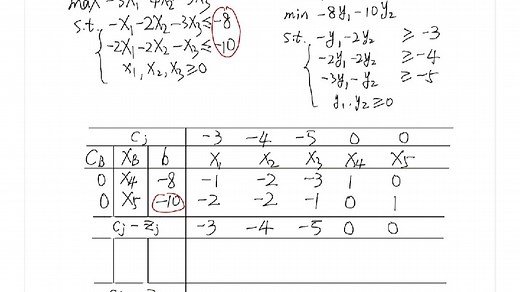 max -3x₁ -4x₂ -5x₃
s.t. -x₁-2x₂-3x₃≤-8
-2x₁-2x₂-x₃≤-10
x₁, x₂, x₃≥0
min -8y₁-10y₂
s.t. -y₁-2y₂ ≥-3
-2y₁-2y₂ ≥-4
-3y₁-y₂ ≥-5
y₁, y₂≥0
Cj -3 -4 -5 0 0
CB XB b x₁ x₂ x₃ x₄ x₅
0 x₄ -8 -1 -2 -3 1 0
0 x₅ -10 -2 -2 -1 0 1
cj-zj -3 -4 -5 0 0